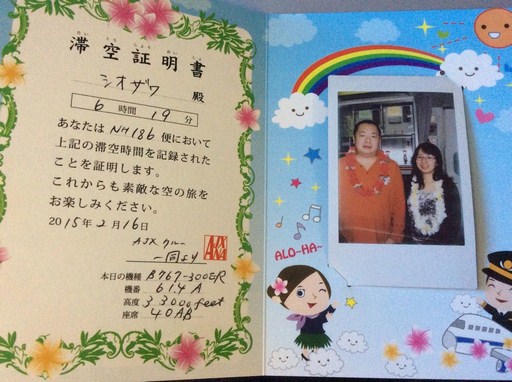 滞空証明書
たい くう しょう めい しょ
シオザワ 殿
6 時間 19 分
あなたは NH186 便において
上記の滞空時間を記録された
ことを証明します。
これからも素敵な空の旅を
お楽しみください。
2015年2月16日
AJX クルー
一同より
本日の機種 B767-300ER
機番 614A
高度 33000feet
座席 40AB
ALO-HA-